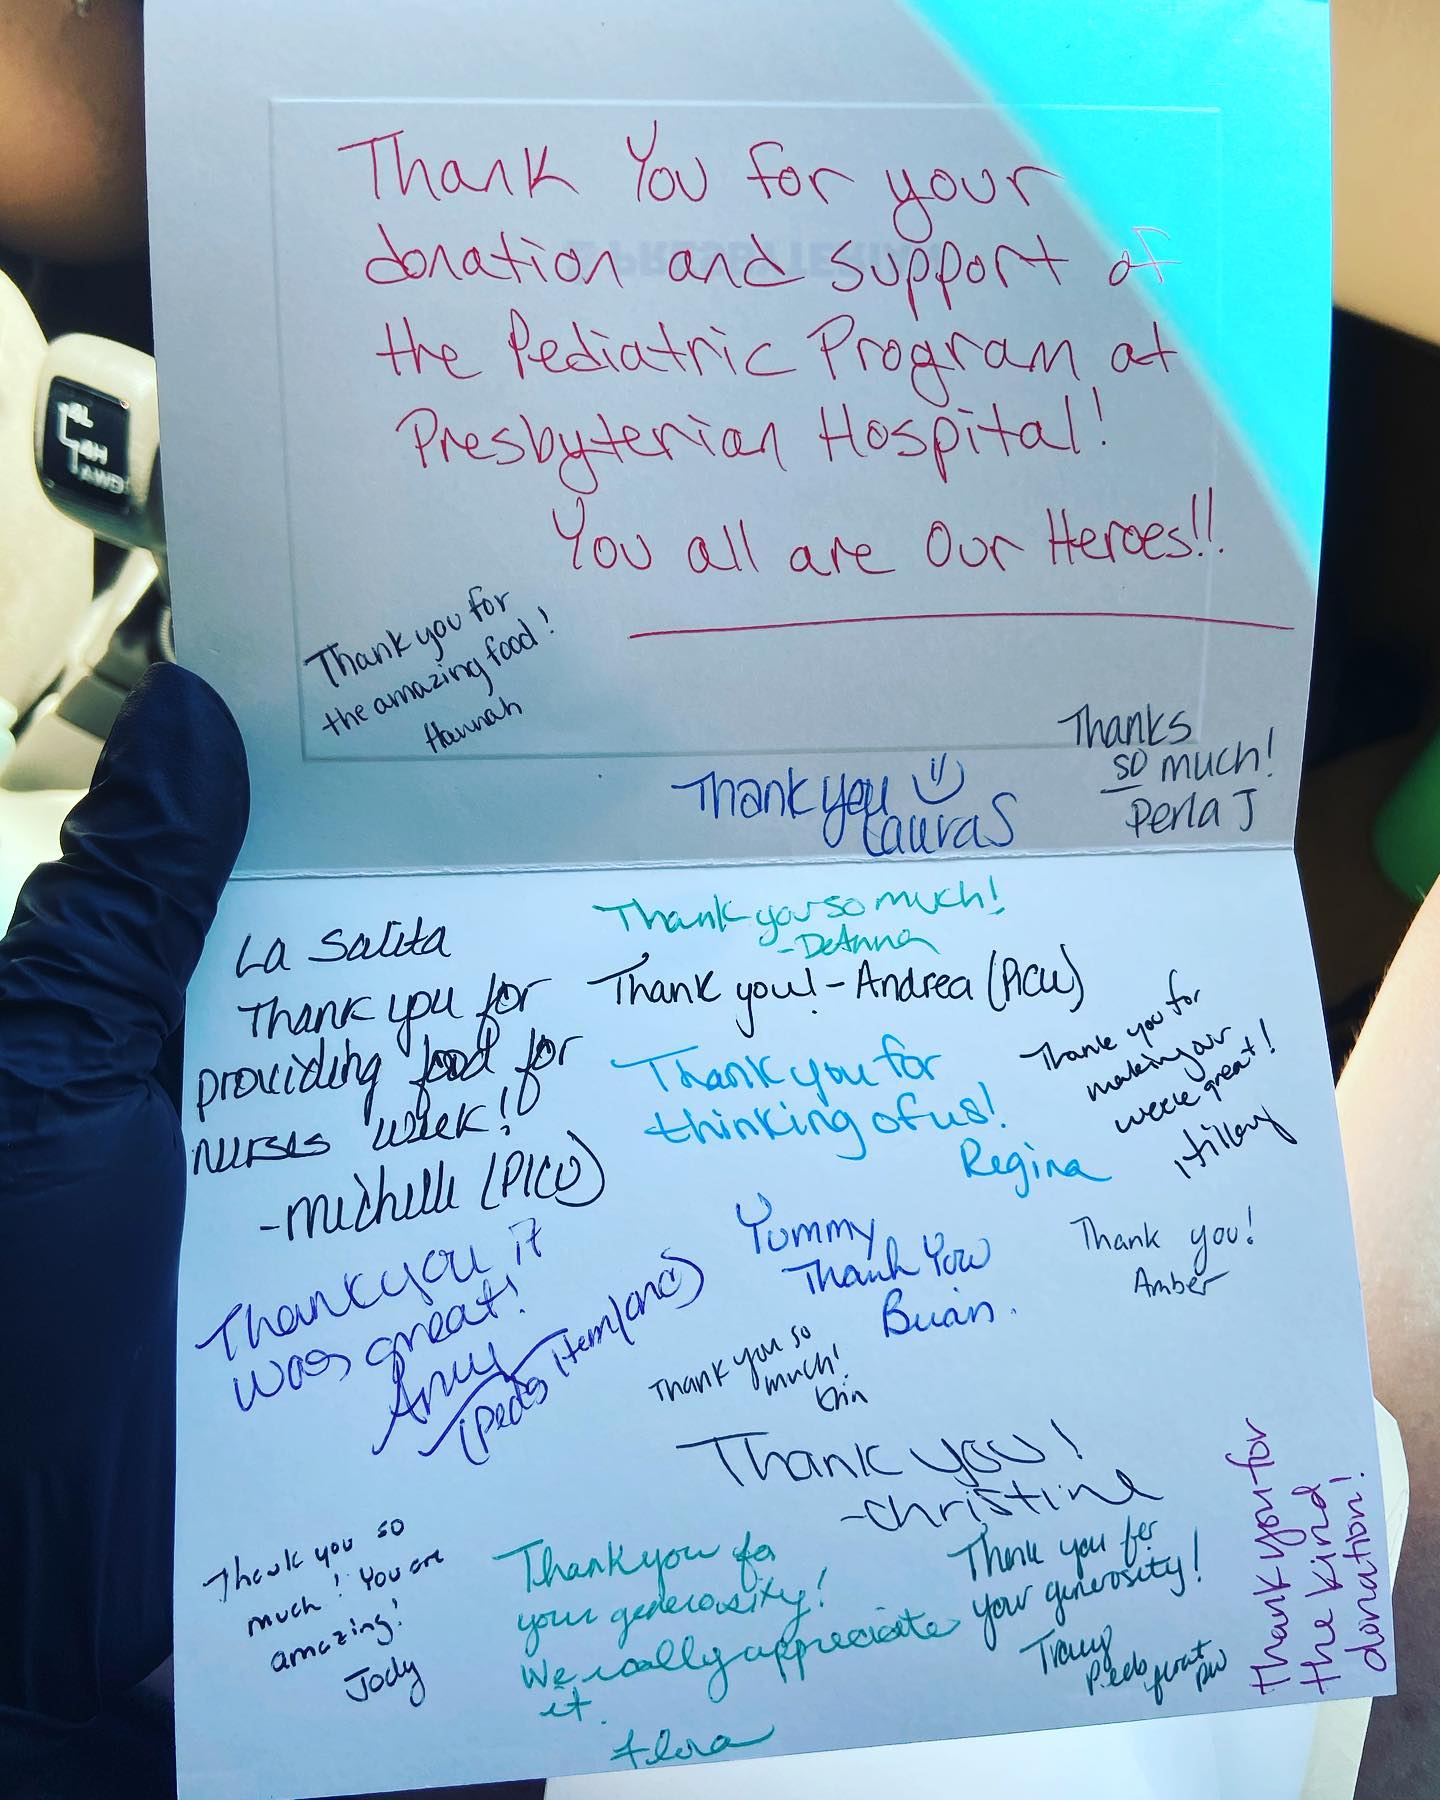 Thank You for your
donation and support of
the Pediatric Program at
Presbyterian Hospital!
You all are Our Heroes!!
Thank you for
the amazing food!
Hannah
Thank you
Laura S
Thanks
so much!
Perla J
La Salita
Thank you for
providing food for
nurses week!
-Michelle (PICU)
Thank you so much!
-DeAnna
Thank you! - Andrea (PICU)
Thank you for
thinking of us!
Regina
Thank you for
making our
week great!
Hillary
Thank you it
was great!
(Peds Hem/onc)
Yummy
Thank You
Thank you!
Amber
Thank you so
much!
Thank you!
-Christine
Thank you so
much! You are
amazing!
Jody
Thank you for
your generosity!
We really appreciate
it.
Flora
Thank you for
your generosity!
Tracy
Peds front
Thank you for
the kind
donation!
4L
4H
AWD